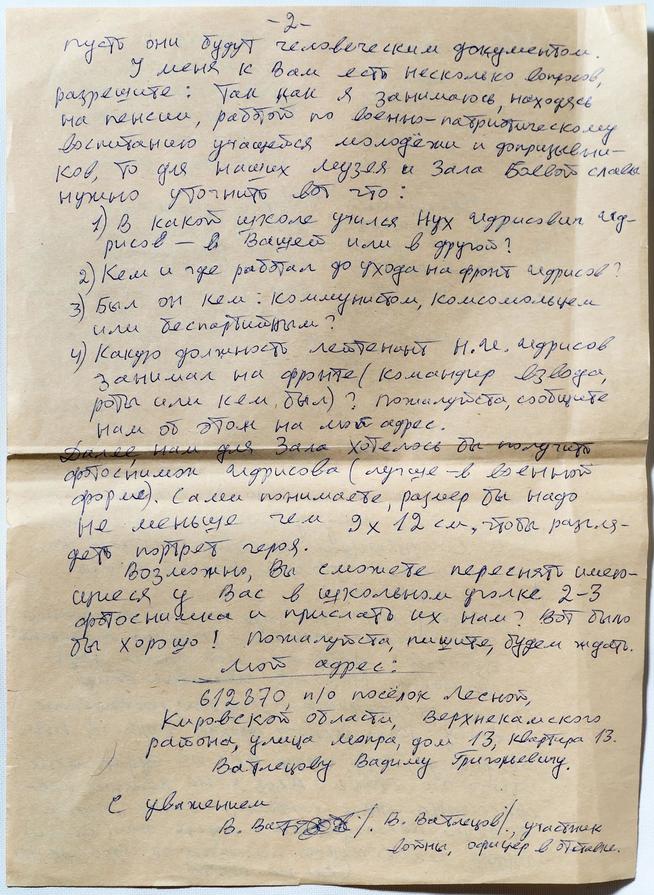 -2-
пусть они будут человеческим документом.
У меня к Вам есть несколько вопросов,
разрешите: Так как я занимаюсь, находясь
на пенсии, работой по военно-патриотическому
воспитанию учащейся молодёжи и допризывни-
ков, то для наших музея и Зала Боевой славы
нужно уточнить вот что:
1) В какой школе учился Нух Идрисович Ид-
рисов — в Вашей или в другой?
2) Кем и где работал до ухода на фронт Идрисов?
3) Был он кем: коммунистом, комсомольцем
или беспартийным?
4) Какую должность лейтенант Н.И. Идрисов
занимал на фронте (командир взвода,
роты или кем был)? Пожалуйста, сообщите
нам об этом на мой адрес.
Далее, нам для Зала хотелось бы получить
фотоснимок Идрисова (лучше - в военной
форме). Сами понимаете, размер бы надо
не меньше чем 9х12 см, чтобы разгля-
деть портрет героя.
Возможно, Вы сможете переснять имею-
щиеся у Вас в школьном уголке 2-3
фотоснимка и прислать их нам? Вот было
бы хорошо! Пожалуйста, пишите, будем ждать.
Мой адрес:
612870, п/о посёлок Лесной,
Кировской области, Верхнекамского
района, улица Мопра, дом 13, квартира 13.
Ватлецову Вадиму Григорьевичу.
С уважением
В. Ватлецов /., участник
войны, офицер в отставке.